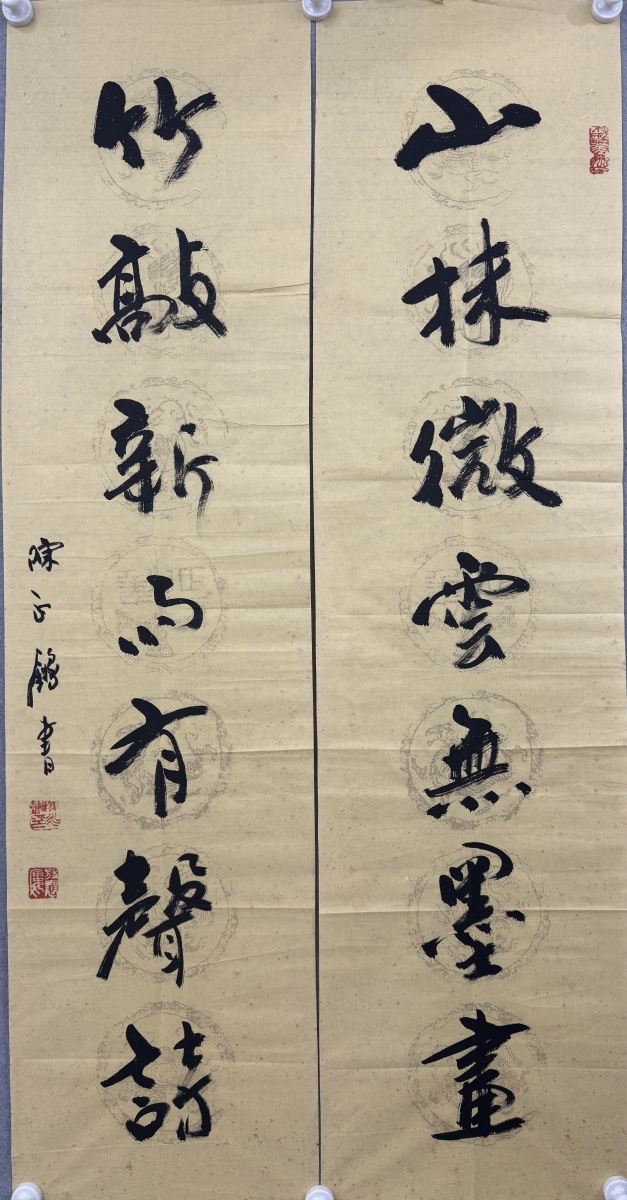 山抹微雲無墨畫
竹敲新雨有聲詩
陳正書